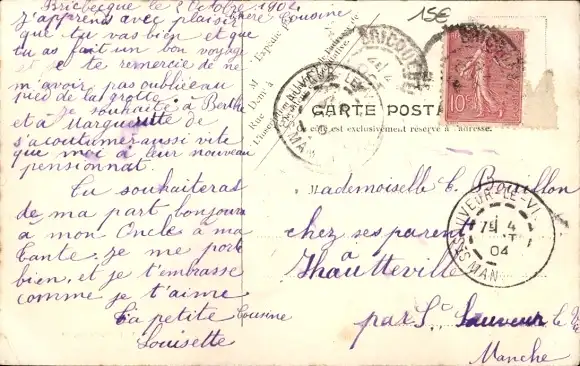 Bricbecque le 2 Octobre 1904
Chère Cousine
j'apprens avec plaisir
que tu vas bien et que
tu as fait un bon voyage
je te remercie de ne
m'avoir pas oubliée au
pied de la grotte
je souhaite à Berthe
et à Marguerite de
s'acoutumer aussi vite
que moi à leur nouveau
pensionnat.
Tu souhaiteras
de ma part, bonjour
à mon Oncle à ma
tante. je me porte
bien, et je t'embrasse
comme je t'aime
Ta petite Cousine
Louisette
15€
BRICQUEBEC
10
CARTE POSTALE
Ce côté est exclusivement réservé à l'adresse.
Mademoiselle C. Bouillon
chez ses parents
à
Hautteville
par St Sauveur le
Manche
ST SAUVEUR-LE-VI
4
04
MAN